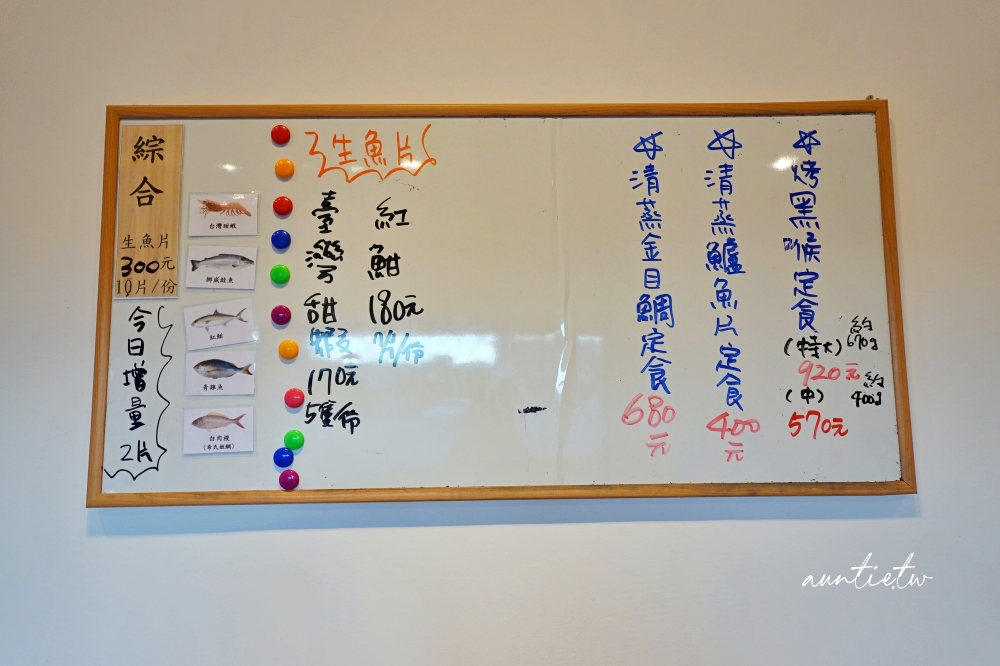 綜合
生魚片
300元
10片/份
今日增量2片
台灣甜蝦
挪威鮭魚
紅魽
青雞魚
白肉梭
生魚片
臺灣甜蝦
170元
5隻/份
紅魽
180元
7片/份
清蒸金目鯛定食
680元
清蒸鱸魚片定食
400元
烤黑喉定食
(特大)
約670g
920元
(中)
約400g
570元
auntie.tw